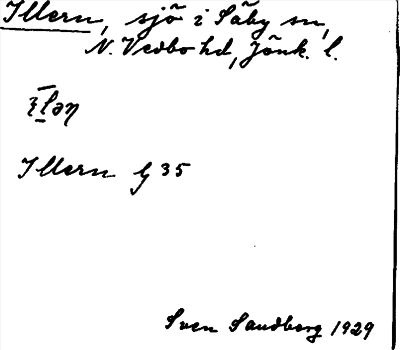 Illern, sjö i Säby sn,
N. Vedbo hd, Jönk. l.
Illern G 35
Sven Sandberg 1929